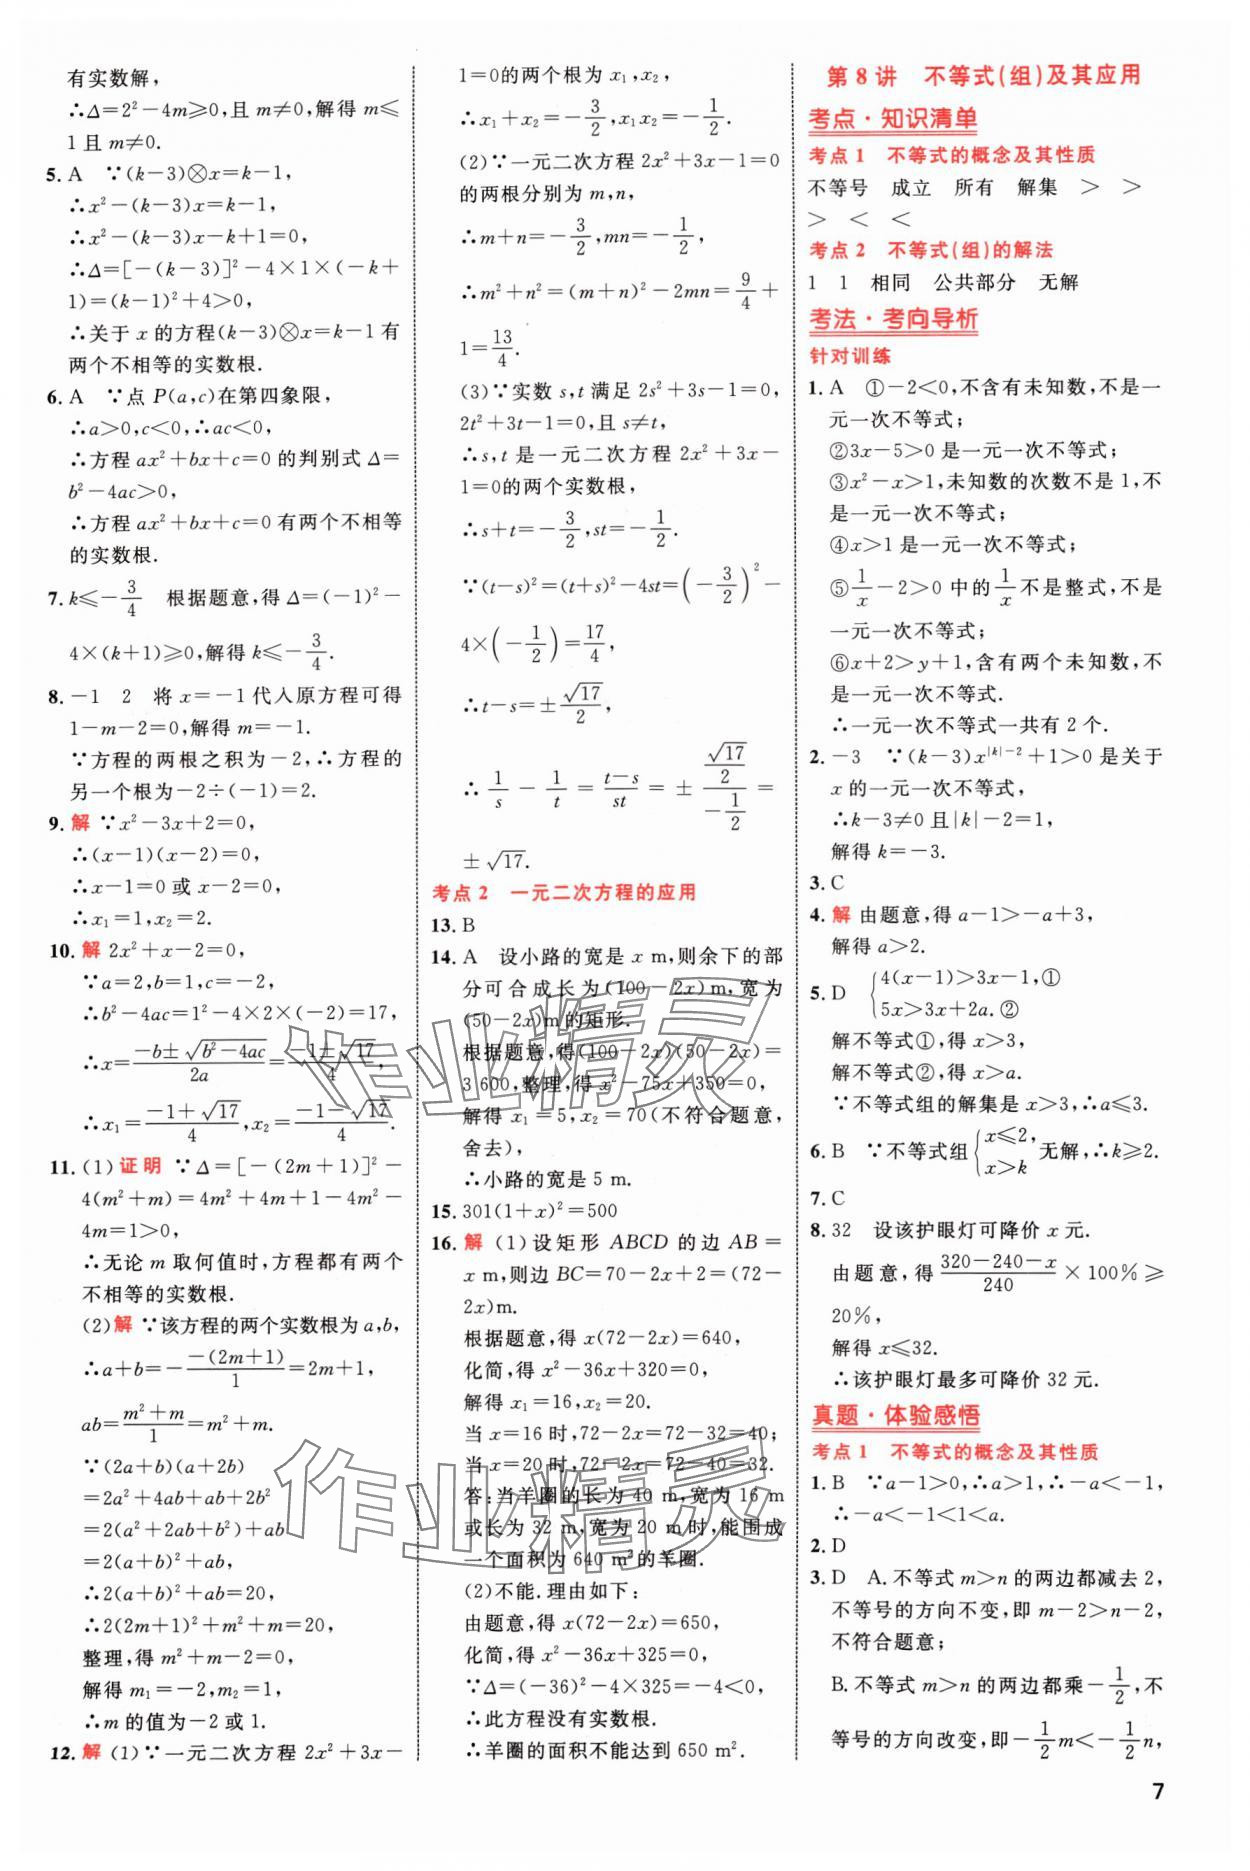 有实数解，
∴Δ=2²-4m≥0,且 m≠0,解得 m≤
1 且 m≠0.
5. A ∵(k-3)⊗x=k-1,
∴x²-(k-3)x=k-1,
∴x²-(k-3)x-k+1=0,
∴Δ=[-(k-3)]²-4×1×(-k+
1)=(k-1)²+4>0,
∴关于 x 的方程(k-3)⊗x=k-1有
两个不相等的实数根.
6. A ∵点 P(a,c)在第四象限,
∴a>0,c<0,∴ac<0,
∴方程 ax²+bx+c=0 的判别式 Δ=
b²-4ac>0,
∴方程 ax²+bx+c=0 有两个不相等
的实数根.
7. k≤-3/4 根据题意,得 Δ=(-1)²-
4×(k+1)≥0,解得 k≤-3/4.
8. -1 2 将 x=-1代入原方程可得
1-m-2=0,解得 m=-1.
∵方程的两根之积为-2,∴方程的
另一个根为-2÷(-1)=2.
9. 解 ∵x²-3x+2=0,
∴(x-1)(x-2)=0,
∴x-1=0 或 x-2=0,
∴x₁=1,x₂=2.
10. 解 2x²+x-2=0,
∵a=2,b=1,c=-2,
∴b²-4ac=1²-4×2×(-2)=17,
∴x=(-b±√(b²-4ac))/2a=(-1±√17)/4,
∴x₁=(-1+√17)/4,x₂=(-1-√17)/4.
11. (1)证明 ∵Δ=[-(2m+1)]²-
4(m²+m)=4m²+4m+1-4m²-
4m=1>0,
∴无论 m 取何值时,方程都有两个
不相等的实数根.
(2)解 ∵该方程的两个实数根为a,b,
∴a+b=-(-(2m+1))/1=2m+1,
ab=(m²+m)/1=m²+m.
∵(2a+b)(a+2b)
=2a²+4ab+ab+2b²
=2(a²+2ab+b²)+ab
=2(a+b)²+ab,
∴2(a+b)²+ab=20,
∴2(2m+1)²+m²+m=20,
整理,得 m²+m-2=0,
解得 m₁=-2,m₂=1,
∴m 的值为-2 或 1.
12. 解 (1)∵一元二次方程 2x²+3x-
1=0的两个根为 x₁,x₂,
∴x₁+x₂=-3/2,x₁x₂=-1/2.
(2)∵一元二次方程 2x²+3x-1=0
的两根分别为 m,n,
∴m+n=-3/2,mn=-1/2,
∴m²+n²=(m+n)²-2mn=9/4+
1=13/4.
(3)∵实数 s,t 满足 2s²+3s-1=0,
2t²+3t-1=0,且 s≠t,
∴s,t 是一元二次方程 2x²+3x-
1=0的两个实数根,
∴s+t=-3/2,st=-1/2.
∵(t-s)²=(t+s)²-4st=(-3/2)²-
4×(-1/2)=17/4,
∴t-s=±√17/2,
∴1/s-1/t=(t-s)/st=±(√17/2)/(-1/2)=
±√17.
考点 2 一元二次方程的应用
13. B
14. A 设小路的宽是 x m,则余下的部
分可合成长为(100-2x)m,宽为
(50-2x)m的矩形.
根据题意,得(100-2x)(50-2x)=
3 600,整理,得 x²-75x+350=0,
解得 x₁=5,x₂=70(不符合题意,
舍去),
∴小路的宽是 5 m.
15. 301(1+x)²=500
16. 解 (1)设矩形 ABCD 的边 AB=
x m,则边 BC=70-2x+2=(72-
2x)m.
根据题意,得 x(72-2x)=640,
化简,得 x²-36x+320=0,
解得 x₁=16,x₂=20.
当 x=16 时,72-2x=72-32=40;
当 x=20 时,72-2x=72-40=32.
答:当羊圈的长为 40 m,宽为 16 m
或长为 32 m,宽为 20 m时,能围成
一个面积为 640 m²的羊圈.
(2)不能.理由如下:
由题意,得 x(72-2x)=650,
化简,得 x²-36x+325=0,
∵Δ=(-36)²-4×325=-4<0,
∴此方程没有实数根.
∴羊圈的面积不能达到 650 m².
第 8 讲 不等式(组)及其应用
考点·知识清单
考点 1 不等式的概念及其性质
不等号 成立 所有 解集 > >
> < <
考点 2 不等式(组)的解法
1 1 相同 公共部分 无解
考法·考向导析
针对训练
1. A ①-2<0,不含有未知数,不是一
元一次不等式;
②3x-5>0 是一元一次不等式;
③x²-x>1,未知数的次数不是 1,不
是一元一次不等式;
④x>1 是一元一次不等式;
⑤1/x-2>0 中的1/x不是整式,不是
一元一次不等式;
⑥x+2>y+1,含有两个未知数,不
是一元一次不等式.
∴一元一次不等式一共有 2 个.
2. -3 ∵(k-3)x^(|k|-2)+1>0是关于
x 的一元一次不等式,
∴k-3≠0 且|k|-2=1,
解得 k=-3.
3. C
4. 解 由题意,得 a-1>-a+3,
解得 a>2.
5. D {4(x-1)>3x-1,①
5x>3x+2a.②
解不等式①,得 x>3,
解不等式②,得 x>a.
∵不等式组的解集是 x>3,∴a≤3.
6. B ∵不等式组{x≤2,
x>k 无解,∴k≥2.
7. C
8. 32 设该护眼灯可降价 x 元.
由题意,得(320-240-x)/240×100%≥
20%,
解得 x≤32.
∴该护眼灯最多可降价 32 元.
真题·体验感悟
考点 1 不等式的概念及其性质
1. B ∵a-1>0,∴a>1,∴-a<-1,
∴-a<-1<1<a.
2. D
3. D A.不等式 m>n 的两边都减去 2,
不等号的方向不变,即 m-2>n-2,
不符合题意;
B.不等式 m>n 的两边都乘-1/2,不
等号的方向改变,即-1/2m<-1/2n,
7
作业精灵
作业精灵